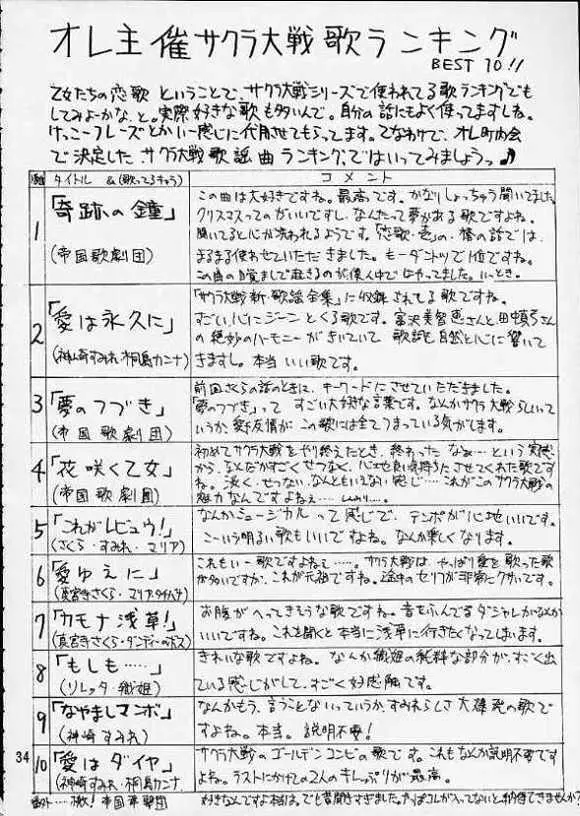 オレ主催サクラ大戦歌ランキング
BEST 10!!
乙女たちの恋歌ということで、サクラ大戦シリーズで使われてる歌ランキングでも
してみよーかな、と。実際好きな歌も多いんで。自分の話にもよく使ってますしね。
けっこーフレーズとかいー感じに代用させてもらってます。てなわけで、オレ町内会
で決定した サクラ大戦歌謡曲ランキング、ではいってみましょうっ♪
タイトル &(歌ってるキャラ) コメント
1 「奇跡の鐘」
(帝国歌劇団)
この曲は大好きですね。最高です。かなりしょっちゅう聞いてました。
クリスマスってのがいいですし、なんたって夢がある歌ですよね。
聞いてると心が洗われるようです。「恋歌・壱」の、椿の話では、
まるまる使わせていただきました。もーダントツで1位ですね。
この曲の目覚ましで起きるのが使人中ではやってました。いっとき。
2 「愛は永久に」
(神崎すみれ・桐島カンナ)
「サクラ大戦 新・歌謡全集」に収録されてる歌ですね。
すごい心にジーンとくる歌です。富沢美智恵さんと田中真弓さん
の絶妙のハーモニーがきいていて 歌詞も自然と心に響いて
きますし。本当 いい歌です。
3 「夢のつづき」
(帝国歌劇団)
前回さくらの話のときに、キーワードにさせていただきました。
「夢のつづき」って すごい大好きな言葉です。なんかサクラ大戦らしいって
いうか、愛と友情が この歌には全てつまっている気がします。
4 「花咲く乙女」
(帝国歌劇団)
初めてサクラ大戦をやり終えたとき、終わった なぁ…という実感
から、なんだかすごくせつなく、心地良い気持ちにさせてくれた歌で
すね。淡く、せつない、なんともいえない感じ……これがこのサクラ大戦の
魅力なんですよねぇ…… しみじみ…。
5 「これがレビュウ!」
(さくら・すみれ・マリア)
なんかミュージカルって感じで、テンポが心地いいです。
こーいう明るい歌もいいですよね。なんか楽しくなります。
6 「愛ゆえに」
(真宮寺さくら・マリア・タチバナ)
これもいー歌ですよねぇ……。サクラ大戦は、やっぱり愛を歌った歌
が多いですが、これが元祖ですね。途中のセリフが非常にクサいです。
7 「カモナ浅草!」
(真宮寺さくら・ダンディーのボス)
お腹がへってきそうな歌ですね。音をふんでるダジャレがなんか
いいですね。これを聞くと本当に浅草に行きたくなってしまいます。
8 「もしも……」
(ソレッタ・織姫)
きれいな歌ですよね。なんか織姫の純粋な部分が、すごく出
ている感じがして、すごく好感触です。
9 「なやましマンボ」
(神崎すみれ)
なんかもう、言うことないっていうか、すみれらしさ大爆発の歌で
すよね。本当。説明不要!
10 「愛はダイヤ」
(神崎すみれ・桐島カンナ)
サクラ大戦のゴールデンコンビの歌です。これもなんか説明不要です
よね。ラストにかけての2人のキレっぷりが最高。
番外……檄!帝国華撃団 好きなんですよ本当は。でも昔聞きすぎました。やっぱコレが入ってないと納得できませんか?
34